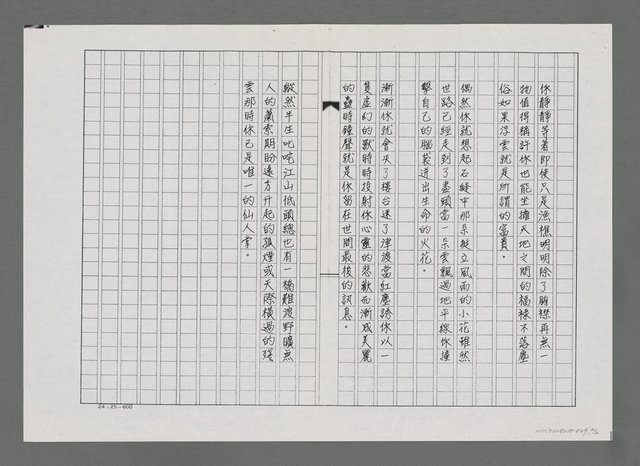 你靜靜等着即使只是漁樵明明除了胸襟再無一
物值得稱許你也能坐擁天地之間的福祿不落塵
俗如果浮雲就是所謂的富貴。
偶然你就想起石縫中那朵挺立風雨的小花雖然
世路已經走到了盡頭當一朵雲飄過地平線你撞
擊自己的腦袋迸出生命的火花。
漸漸你就會失了樓台迷了津渡當紅塵誘你以一
隻虛幻的獸時時投射你心靈的悲歡而漸成美麗
的
時鐘聲就是你留在世間最後的訊息。
縱然半生叱咤江山低頭總也有一橋難渡野曠無
人的蕭索期盼遠方升起的孤煙或天際橫過的殘
雲那時你已是唯一的仙人掌。
24-25-600